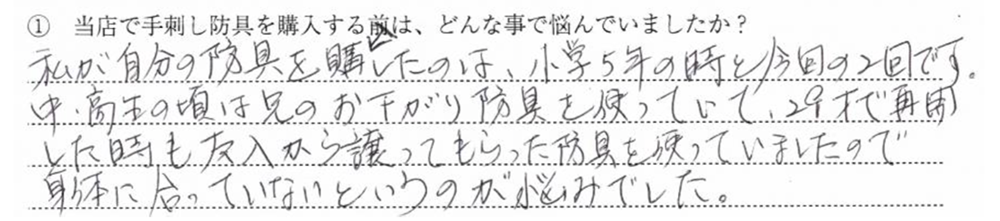 ① 当店で手刺し防具を購入する前は、どんな事で悩んでいましたか？
私が自分の防具を購入したのは、小学5年の時と今回の2回です。
中・高生の頃は兄のお下がり防具を使っていて、29才で再開
した時も友人から譲ってもらった防具を使っていましたので
身体に合っていないというのが悩みでした。